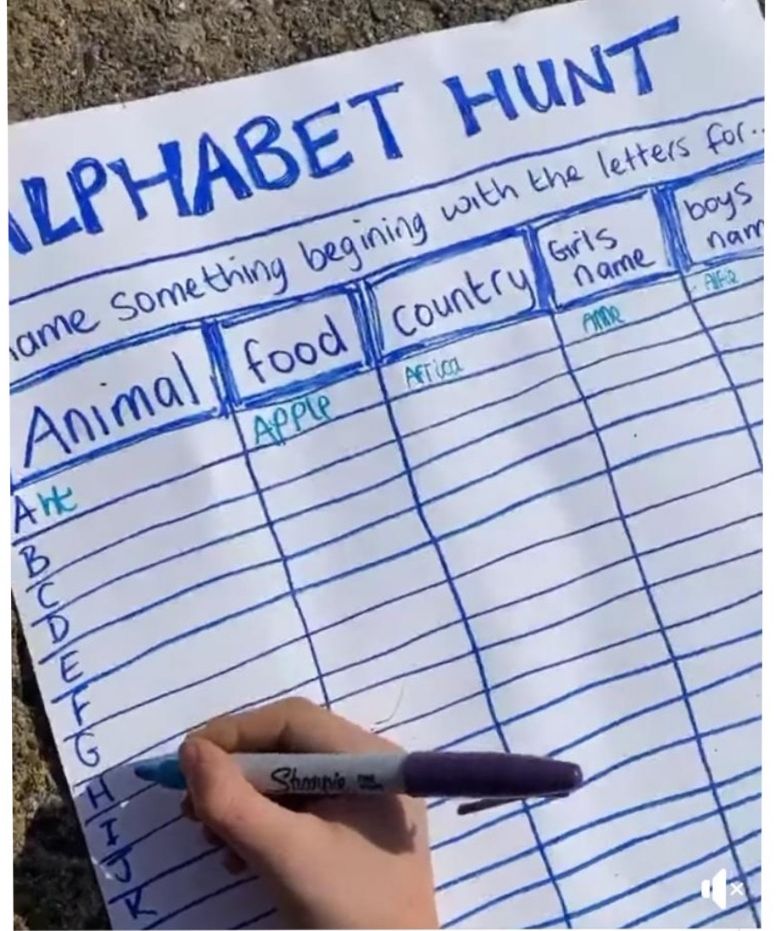 ALPHABET HUNT
name something begining with the letters for..
Animal food Country Girls name boys nam
Ant Apple Africa Anne Alfie
B
C
D
E
F
G
H
I
J
K
Sharpie